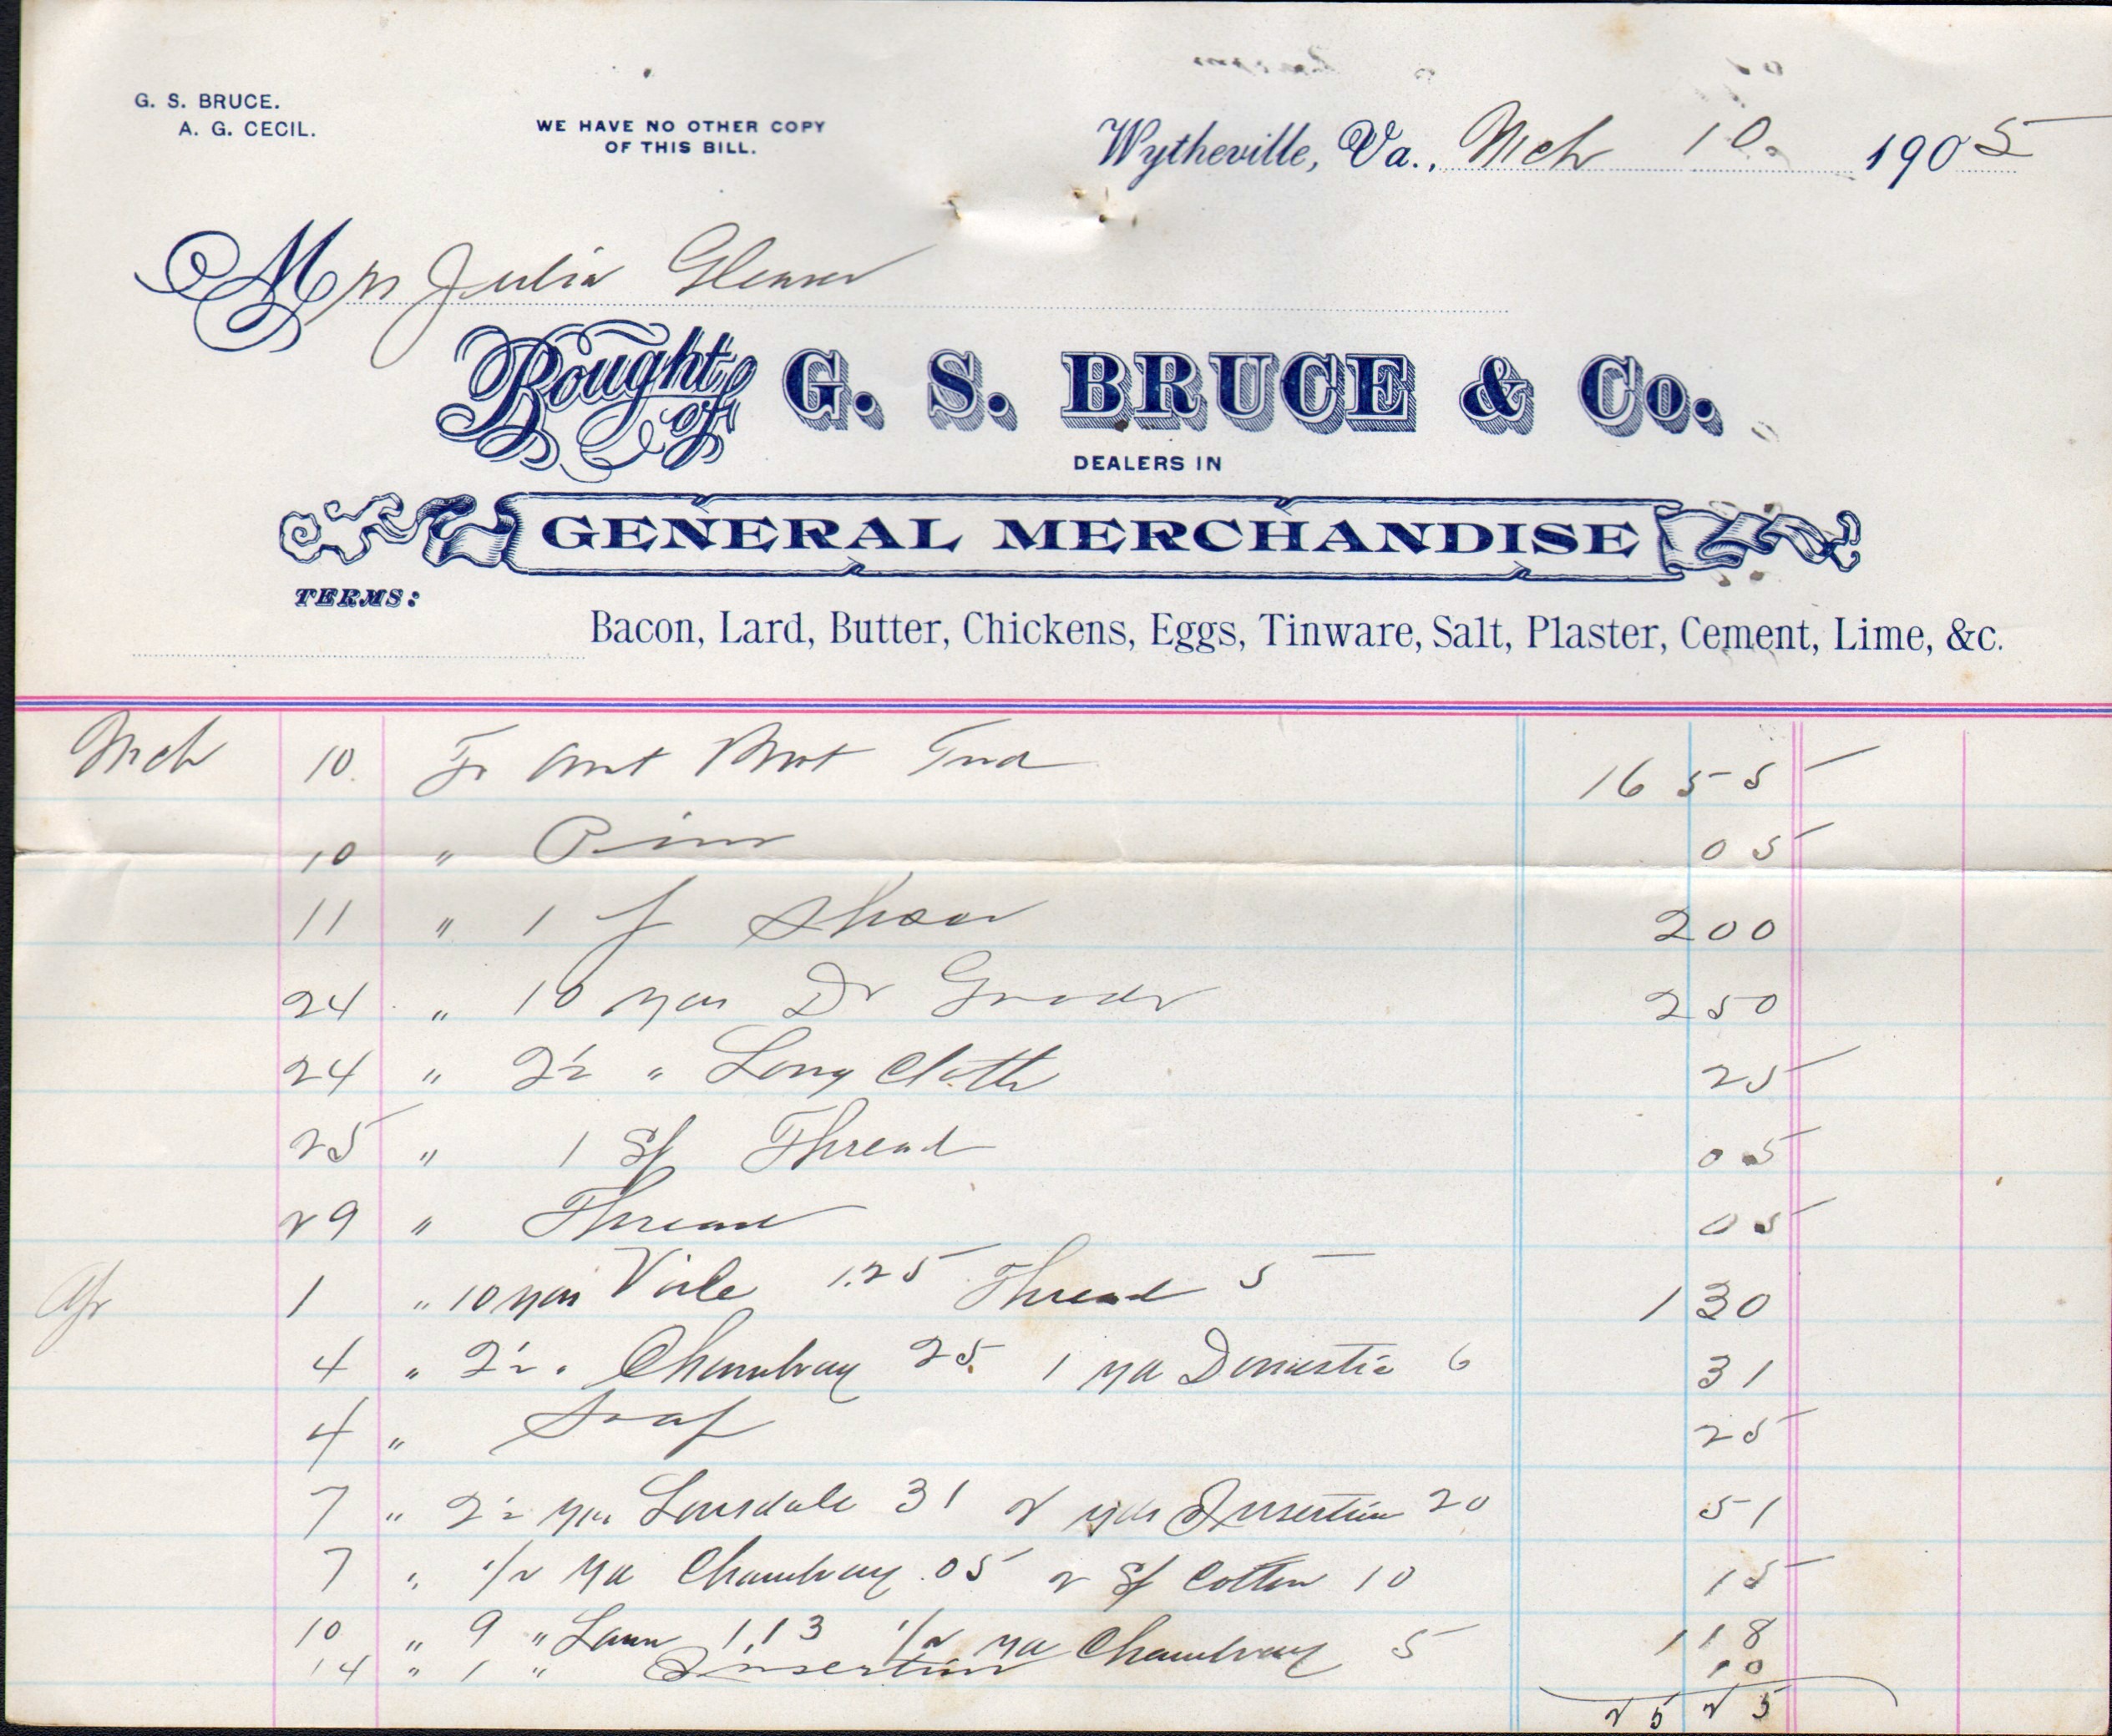 G. S. BRUCE.
A. G. CECIL.
WE HAVE NO OTHER COPY
OF THIS BILL.
Wytheville, Va., Mch 10 1905
Mrs Julia
Bought of G. S. BRUCE & Co.
DEALERS IN
GENERAL MERCHANDISE
TERMS:
Bacon, Lard, Butter, Chickens, Eggs, Tinware, Salt, Plaster, Cement, Lime, &c.
Mch 10 To Amt 16 55
10 " Pins 05
11 " 1 p Shoes 2 00
24 " 10 yds Dr Goods 2 50
24 " 2½ " Long Cloth 25
25 " 1 Sp Thread 05
29 " Thread 05
Apr 1 " 10 yds Voile 1.25 Thread 5 1 30
4 " 2½ " Chambray 25 1 yd Domestic 6 31
4 " Soap 25
7 " 2½ yds Lonsdale 31 2 yds Insertion 20 51
7 " 1/2 yd Chambray .05 2 Sp Cotton 10 15
10 " 9 " Lawn 1.13 1/2 yd Chambray 5 1 18
14 " 1 " Insertion 10
25 25